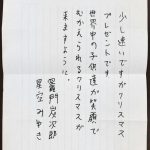 少し遅いですがクリスマス
プレゼントです
世界中の子供達が笑顔で
むかえられるクリスマスが
来ますように。
竈門炭次郎
星空みゆき